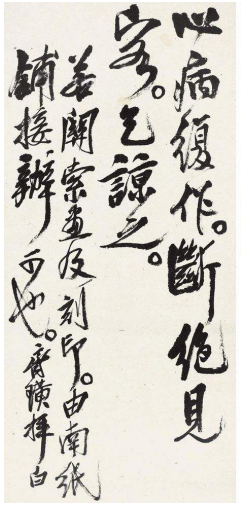 心病復作。斷絶見
客。乞諒之。
若關索畫及刻印。由南紙
鋪接辦可也。齊璜拜白